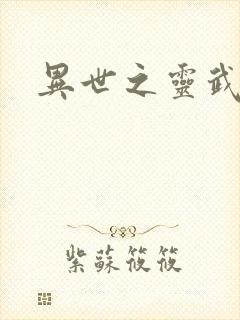 異世之靈武
紫蘇筱筱